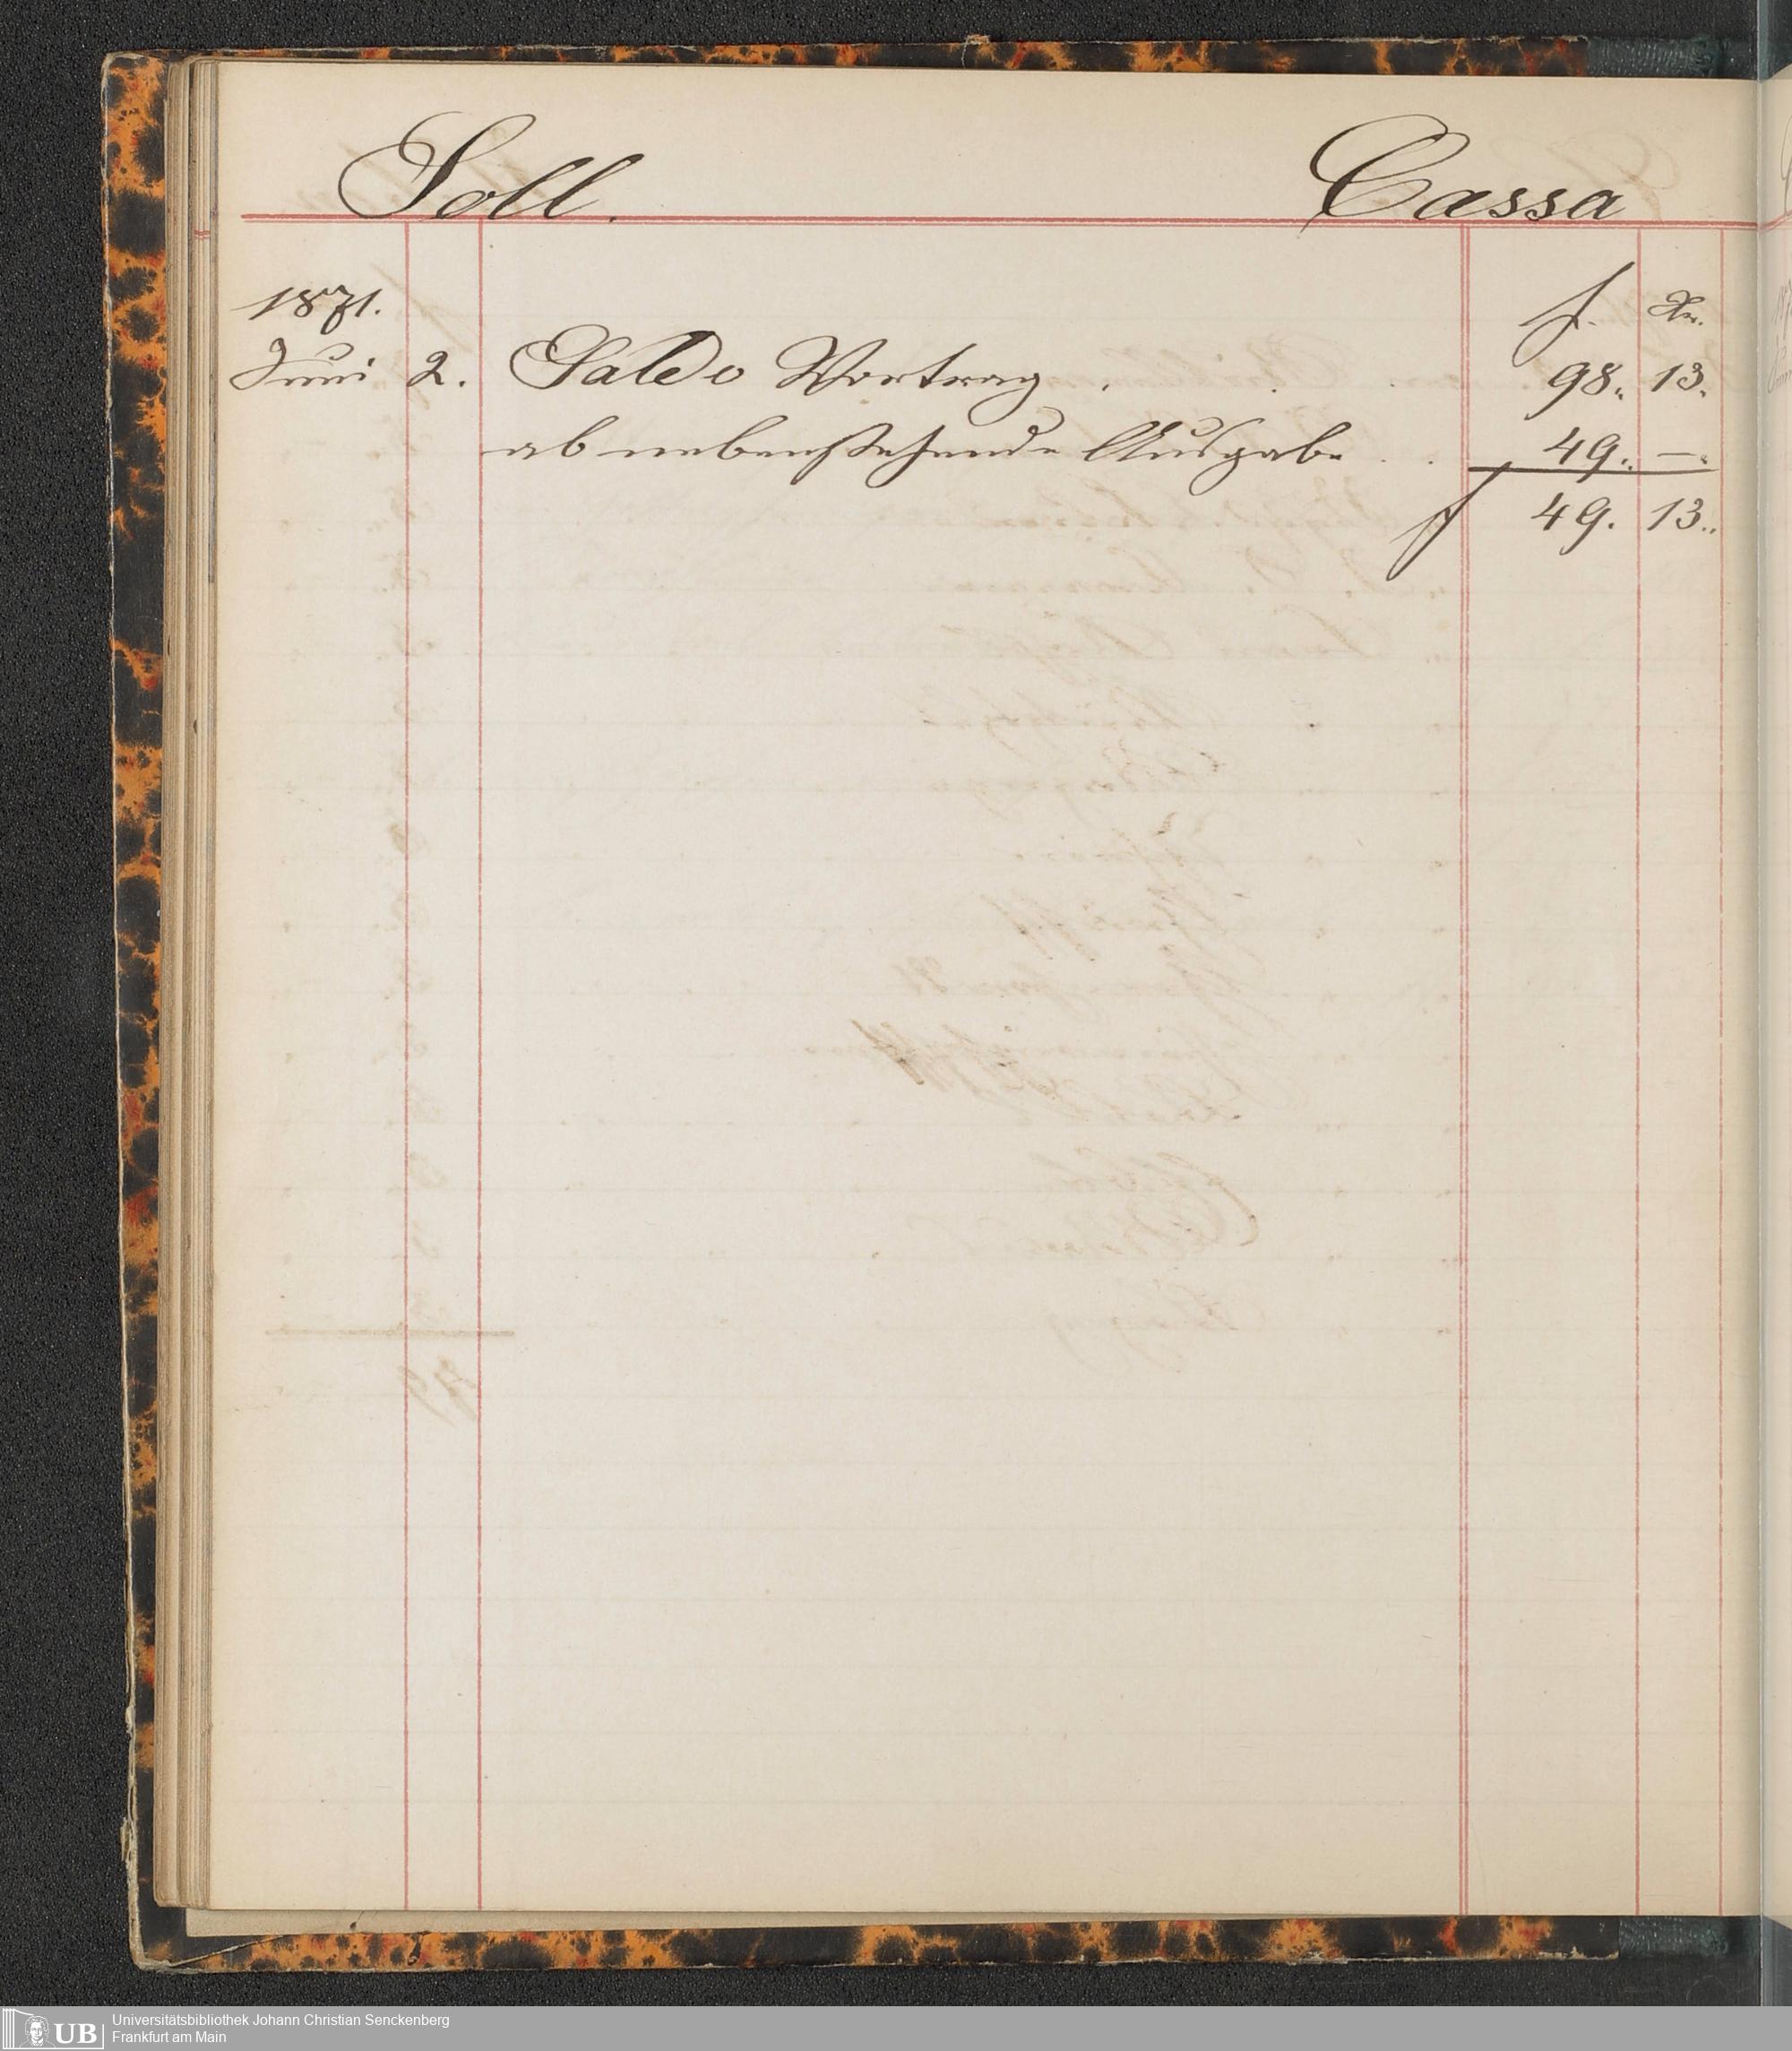 Soll. Cassa
1871. f. Xr.
Juni 2. Saldo Vortrag . . . 98.. 13.
ab nebenstehende Ausgabe . . 49.. —.
f 49. 13..
UB Universitätsbibliothek Johann Christian Senckenberg
Frankfurt am Main